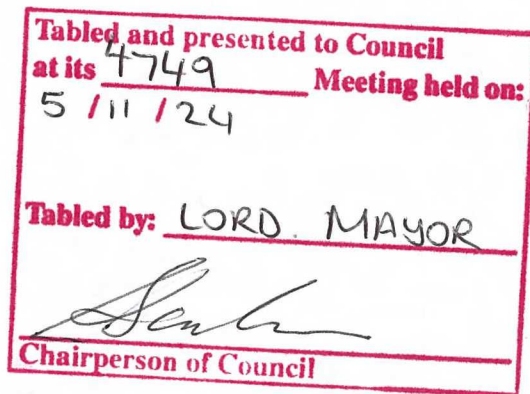 Tabled and presented to Council
at its 4749 Meeting held on:
5 / 11 / 24
Tabled by: LORD. MAYOR
Chairperson of Council